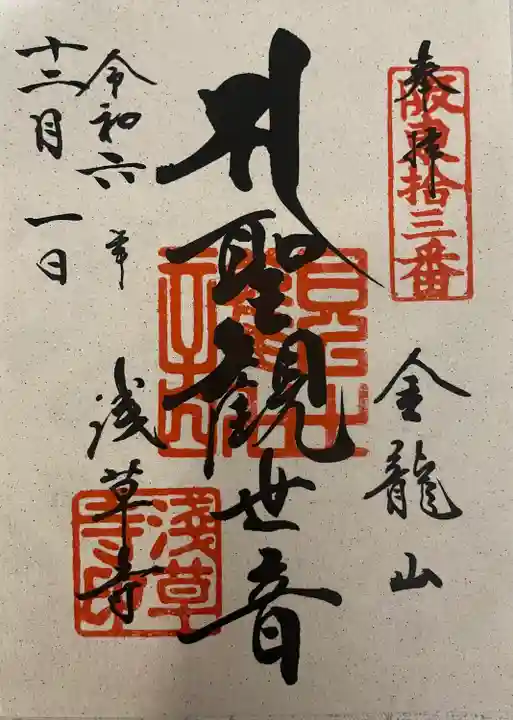 奉拝
阪東拾三番
金龍山
聖観世音
令和六年
十二月一日
浅草寺
淺草寺印